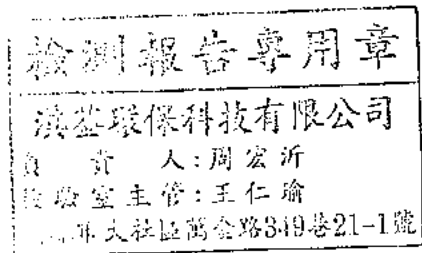 檢測報告專用章
滇荃環保科技有限公司
負責人:周宏沂
檢驗室主管:王仁瑜
市大社區萬金路349巷21-1號